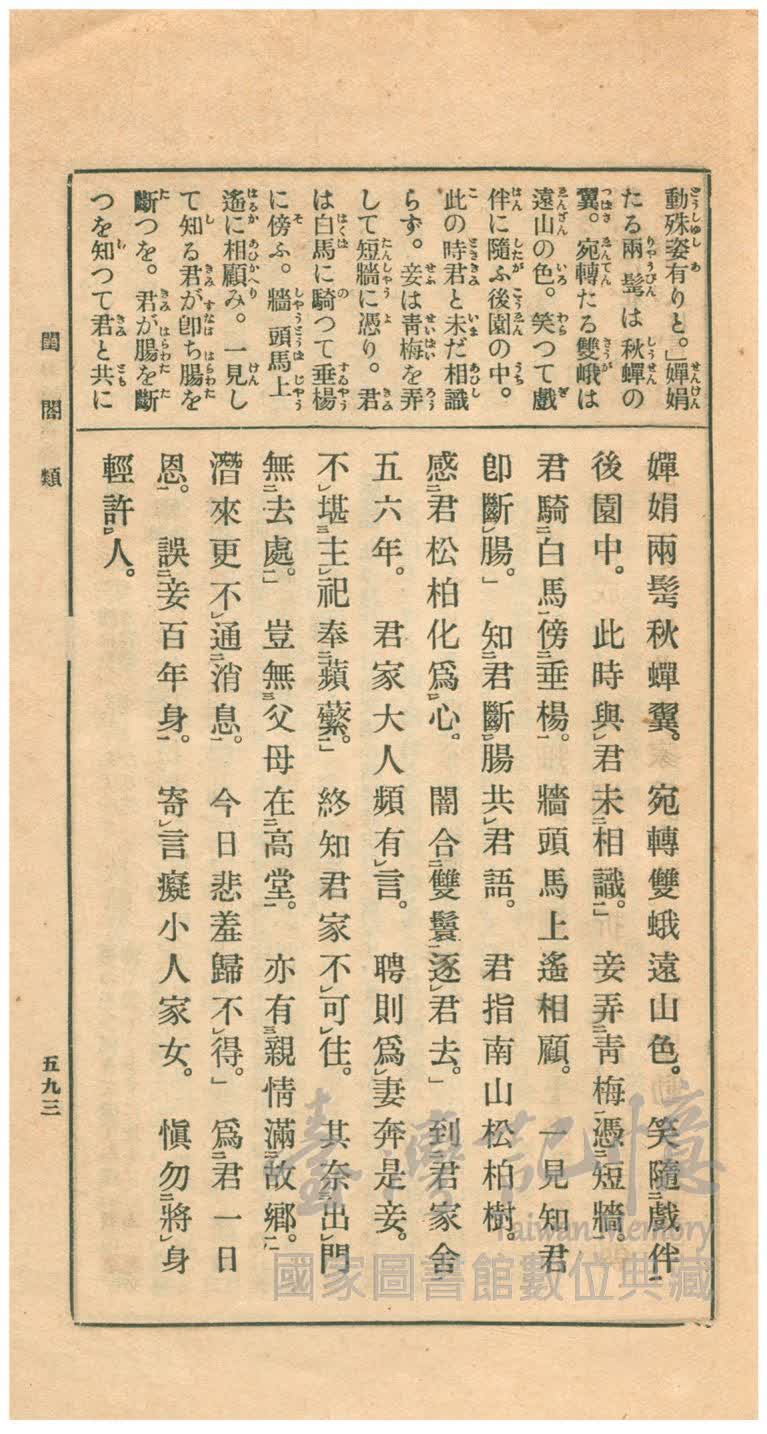 動殊姿有りと。」嬋娟
たる兩髩は秋蟬の
翼。宛轉たる雙峨は
遠山の色。笑つて戲
伴に隨ふ後園の中。
此の時君と未だ相識
らず。妾は靑梅を弄
して短牆に憑り。君
は白馬に騎つて垂楊
に傍ふ。牆頭馬上
遙に相顧み。一見し
て知る君が卽ち腸を
斷つを。君が腸を斷
つを知つて君と共に
嬋娟兩髩秋蟬翼。宛轉雙蛾遠山色。笑隨二戲伴一
後園中。此時與レ君未二相識一。」妾弄二靑梅一憑二短牆一。
君騎二白馬一傍二垂楊一。牆頭馬上遙相顧。一見知君
卽斷レ腸。」知二君斷腸共レ君語。君指南山松柏樹。
感二君松柏化爲心。闇合二雙鬟一逐レ君去。」到二君家舍一
五六年。君家大人頻有レ言。聘則爲レ妻奔是妾。
不レ堪三主レ祀奉二蘋蘩一。」終知君家不レ可レ住。其奈三出レ門
無二去處一。」豈無三父母在二高堂一。亦有三親情滿二故鄉一。
潛來更不レ通二消息一。今日悲羞歸不レ得。」爲二君一日
恩一。誤二妾百年身一。寄レ言癡小人家女。愼勿二將レ身
輕許人。
閨閤類
五九三
臺灣記憶
Taiwan Memory
國家圖書館數位典藏